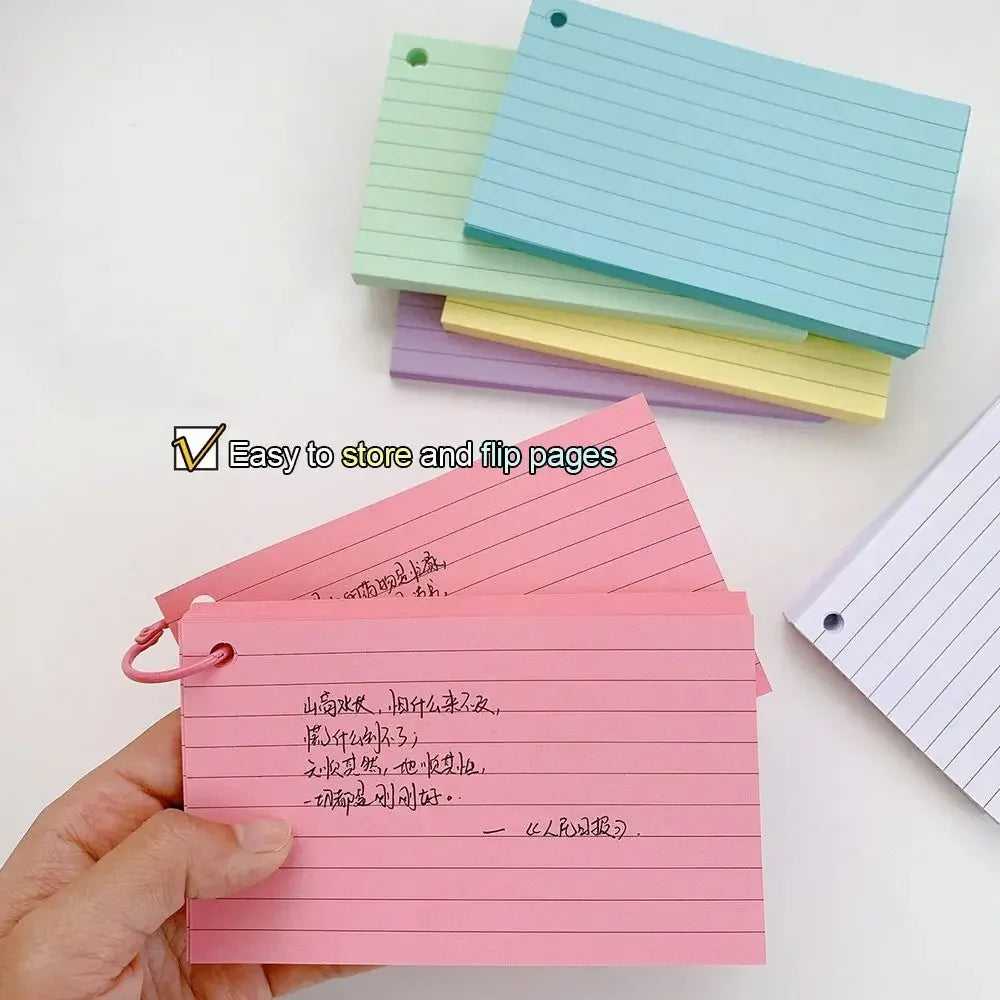 Easy to store and flip pages
山高水长，怕什么来不及，
慌什么到不了；
天顺其然，地顺其性，
一切都是刚刚好。
— 《人民日报》.